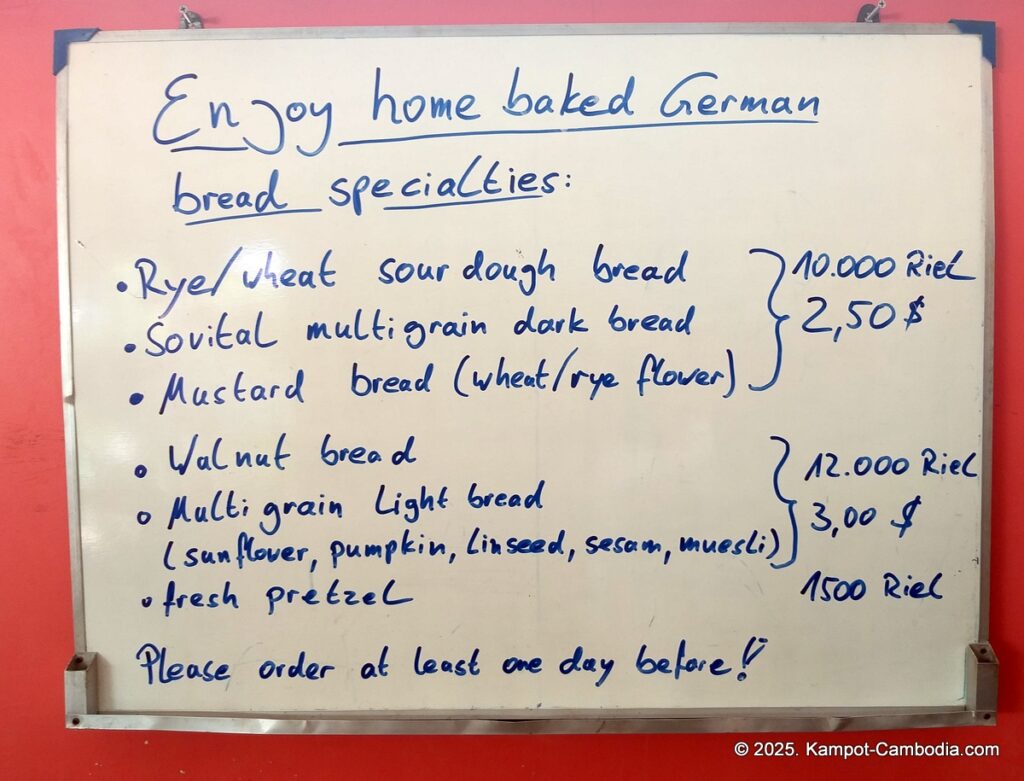 Enjoy home baked German
bread specialties:
• Rye/wheat sour dough bread
• Sovital multigrain dark bread
• Mustard bread (wheat/rye flower)
10.000 Riel
2,50 $
• Walnut bread
• Multigrain Light bread
(sunflower, pumpkin, linseed, sesam, muesli)
12.000 Riel
3,00 $
• fresh pretzel 1500 Riel
Please order at least one day before!!
© 2025. Kampot-Cambodia.com